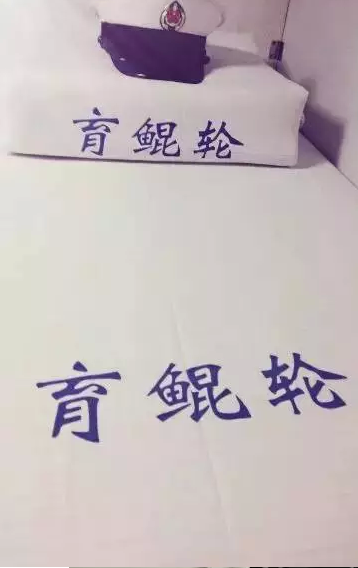 育鲲轮
育鲲轮